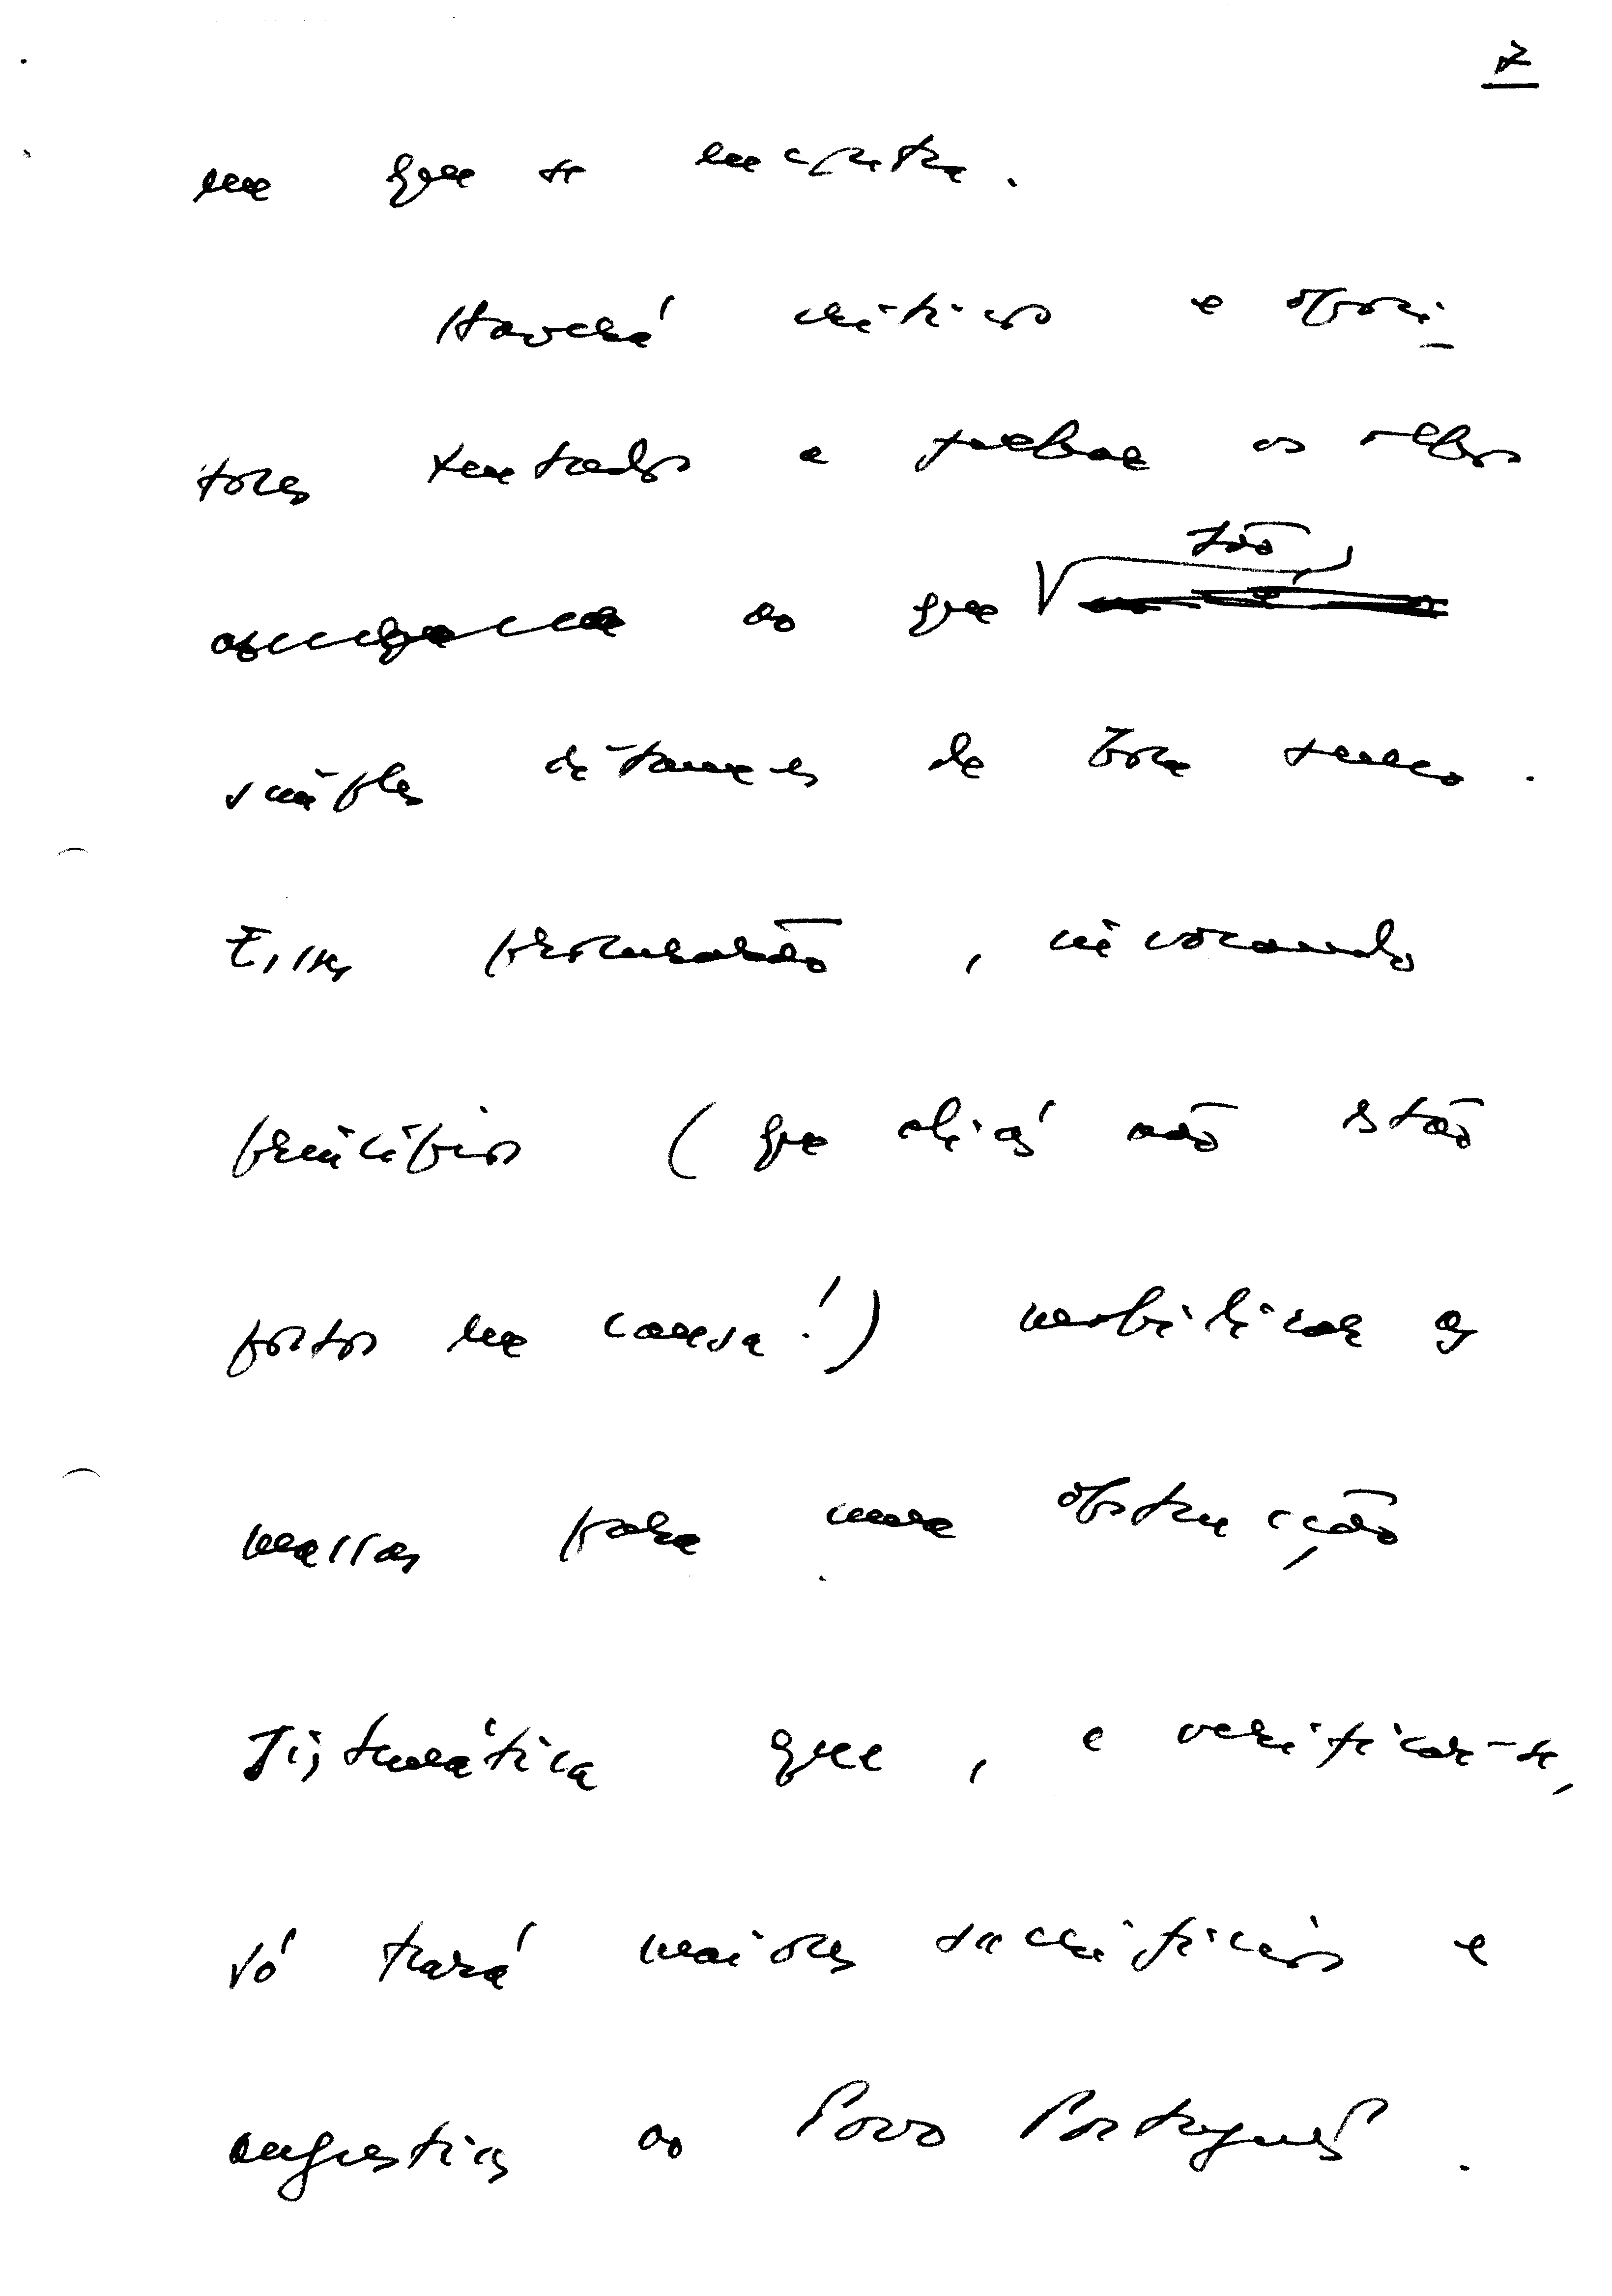 7
em que se encontra.
Haverá críticos e oposi-
tores tentados a fechar os olhos
ao que são
simples ditames de bom senso.
Esses procurarão, invocando
princípios (que aliás não estão
postos em causa!) mobilizar as
massas para uma obstrução
sistemática que, a verificar-se,
só trará maiores sacrifícios e
angústias ao Povo Português.